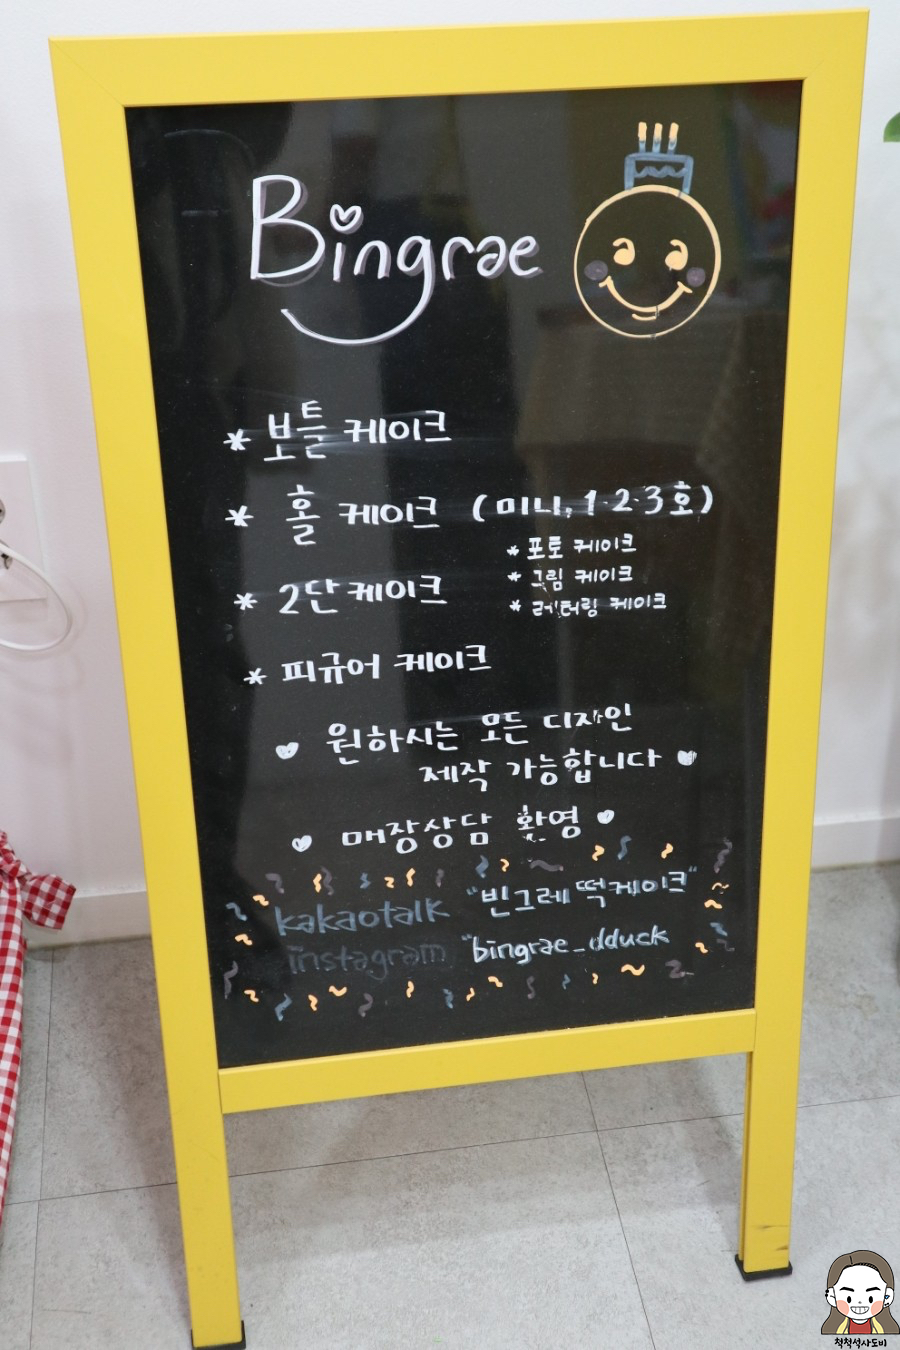 Bingrae
* 보틀 케이크
* 홀 케이크 (미니, 1·2·3호)
* 포토 케이크
* 그림 케이크
* 레터링 케이크
* 2단케이크
* 피규어 케이크
♥ 원하시는 모든 디자인
제작 가능합니다 ♥
♥ 매장상담 환영 ♥
kakaotalk "빈그레 떡케이크"
instagram "bingrae_dduck
척척석사도비